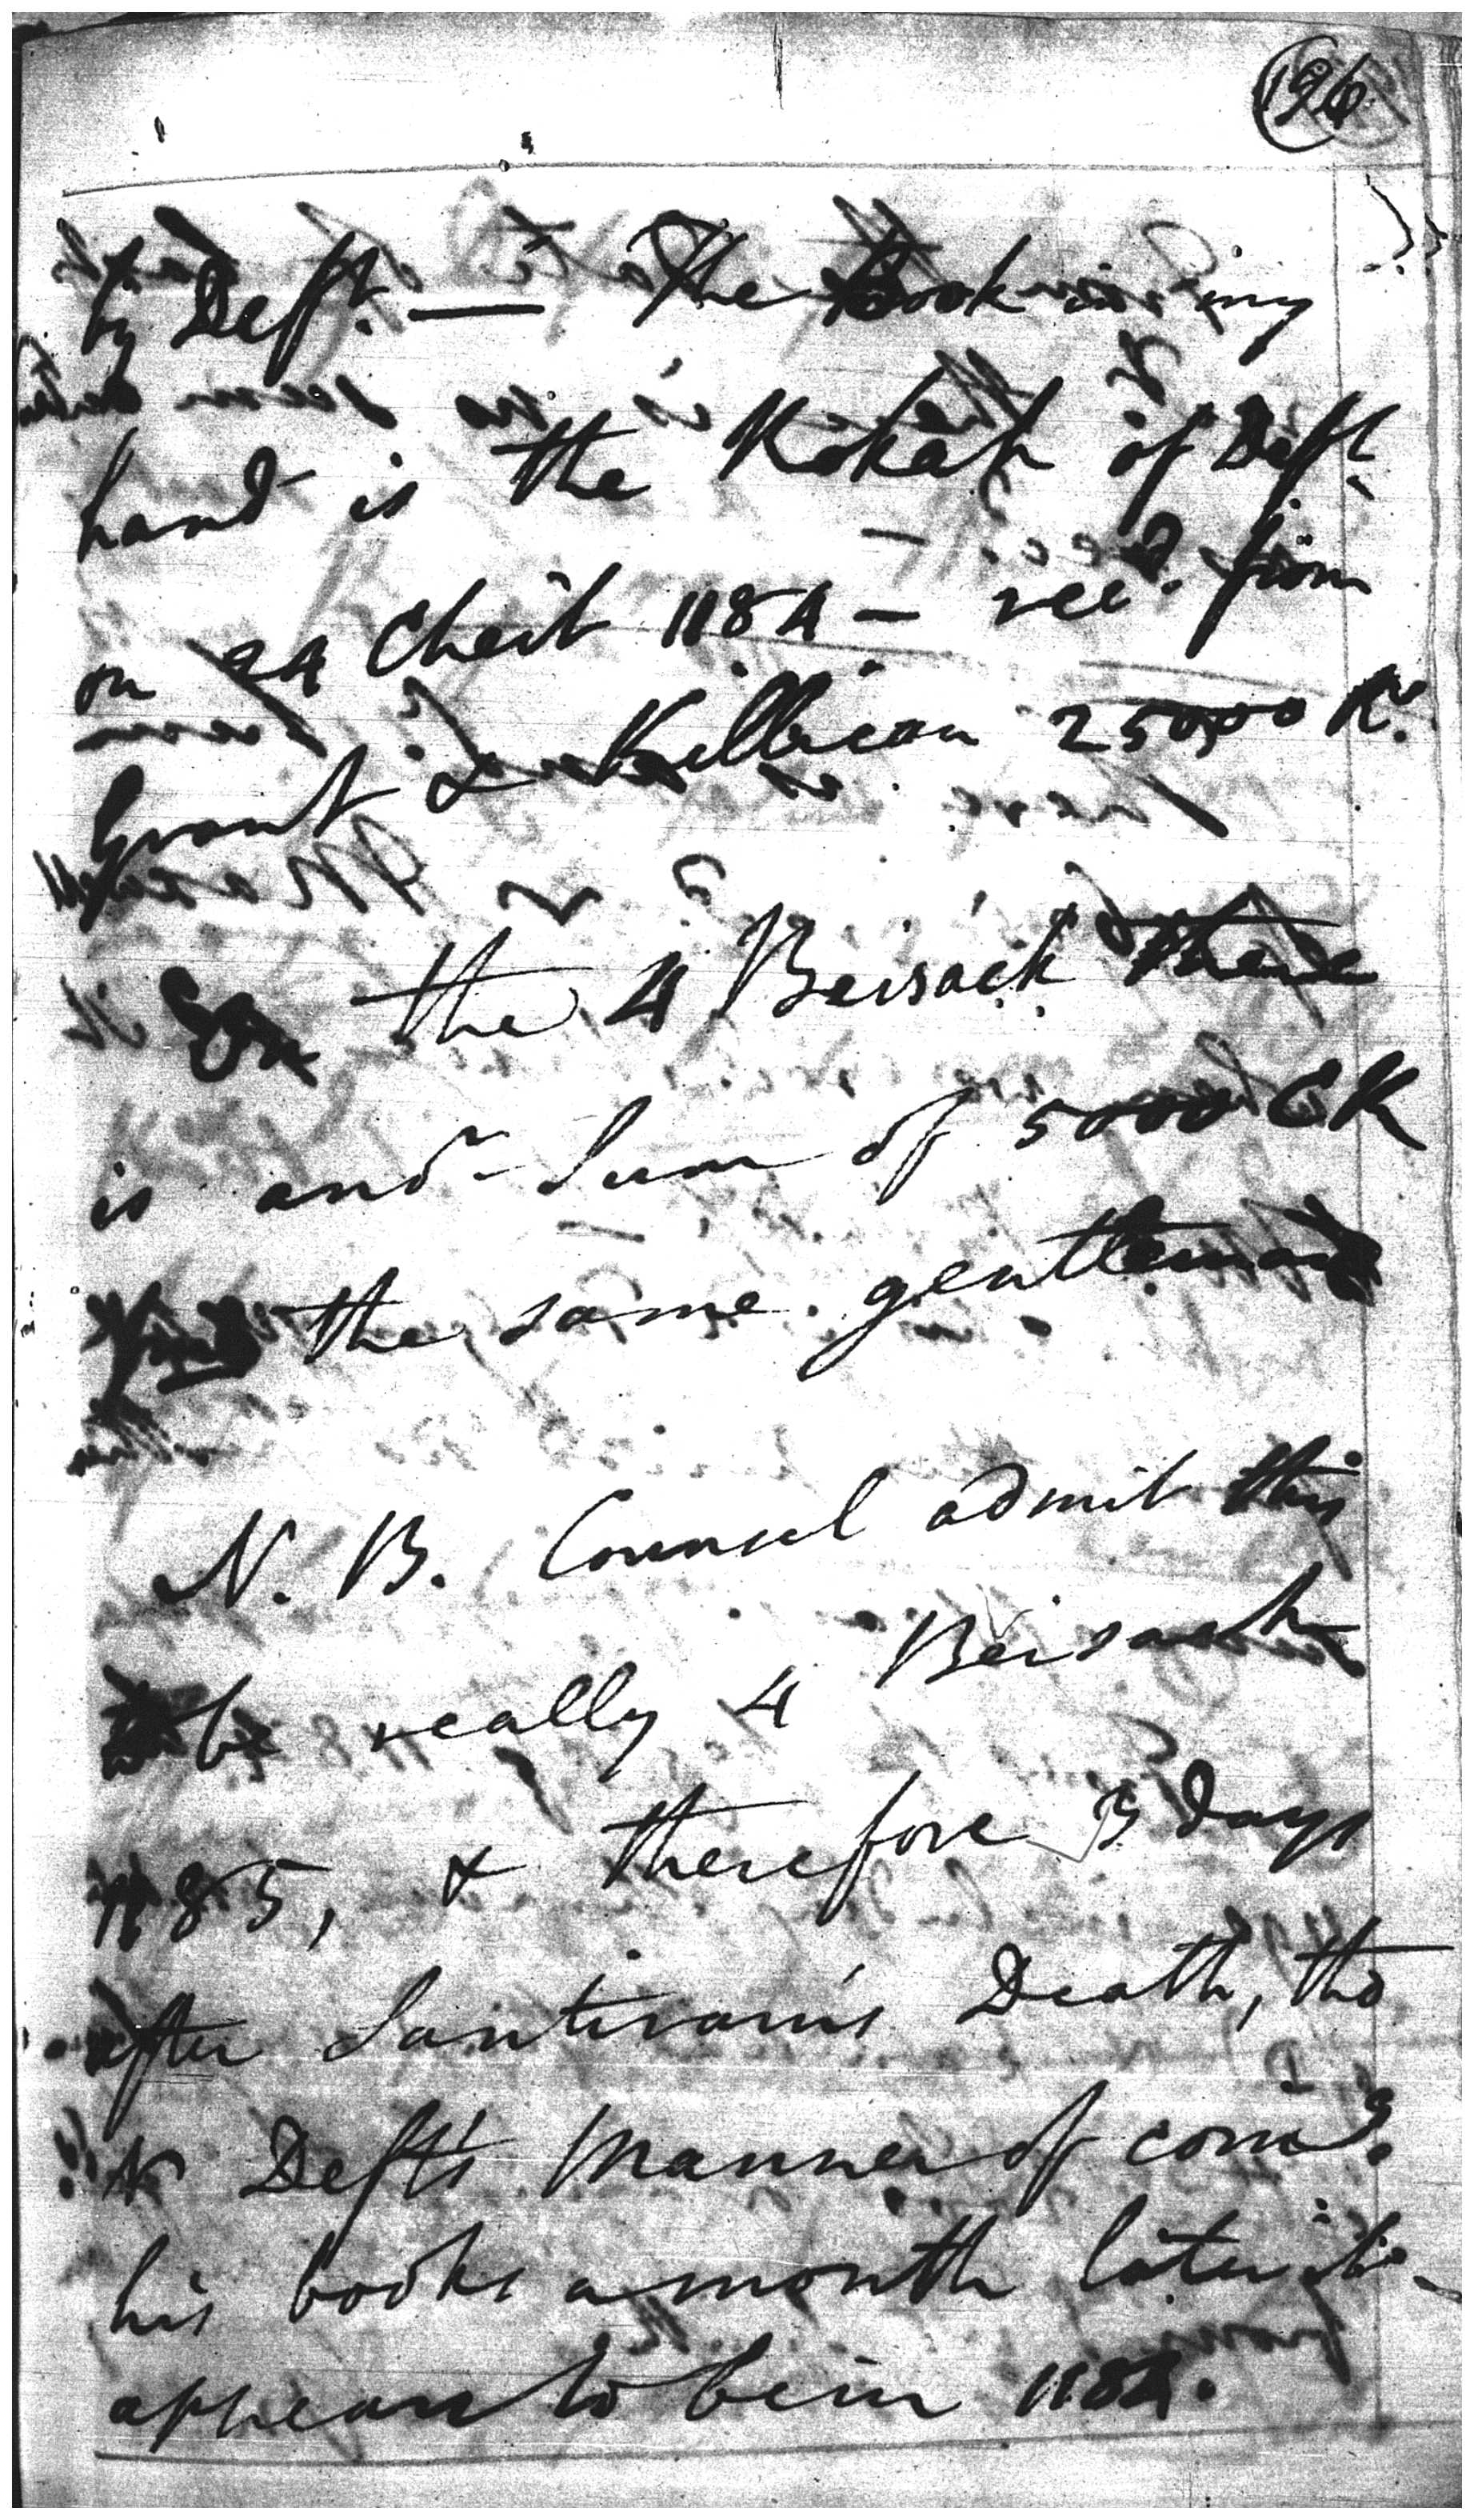 196
by Deft. — The Book in my
hand is the Kokah of Deft.
on 24 Cheit 1184 — recd. from
Grant & Killican 25000 Rs.
On the 4 Beisack there
is anor. Sum of 5000 CR
the same gentleman
N. B. Counsel admit this
to be really 4 Beisack
1185, & therefore 3 days
after Santiram's Death, tho
Defts manner of
his books a month later it
appears to be in 1184.